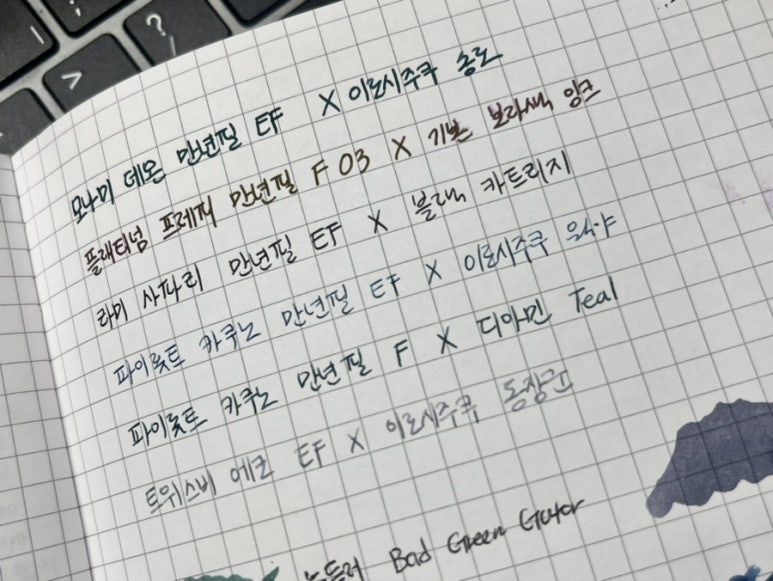 모나미 데몬 만년필 EF X 이로시주쿠 송로
플래티넘 프레피 만년필 F 03 X 기본 보라색 잉크
라미 사파리 만년필 EF X 블랙 카트리지
파이롯트 카쿠노 만년필 EF X 이로시주쿠 월야
파이롯트 카쿠노 만년필 F X 디아민 Teal
트위스비 에코 EF X 이로시주쿠 동장군
누들러 Bad Green Gator